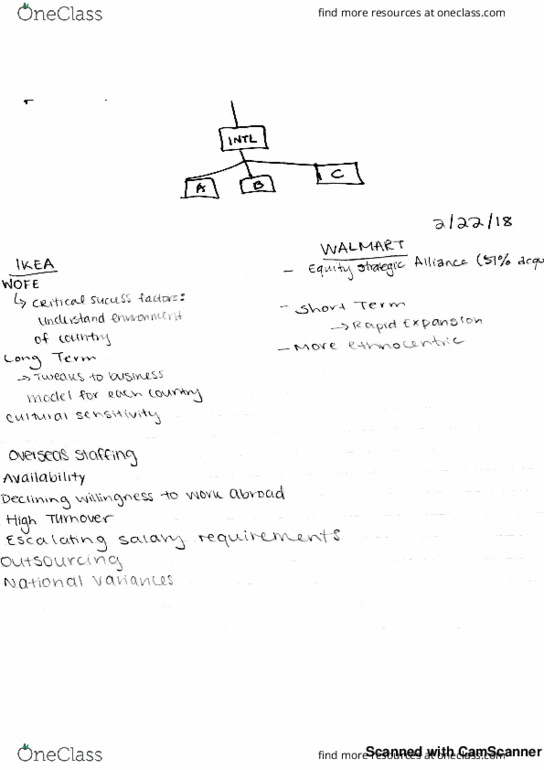 OneClass
find more resources at oneclass.com
INTL
A
B
C
2/22/18
IKEA
WOFE
↳ critical sucess factors:
understand environment
of country
Long Term
→ Tweaks to business
model for each country
cultural sensitivity
WALMART
- Equity strategic Alliance (51% acqu
- Short Term
→ Rapid Expansion
- More ethnocentric
Overseas Staffing
Availability
Declining willingness to work abroad
High Turnover
Escalating salary requirements
Outsourcing
National Variances
OneClass
find more resources at oneclass.com
Scanned with CamScanner